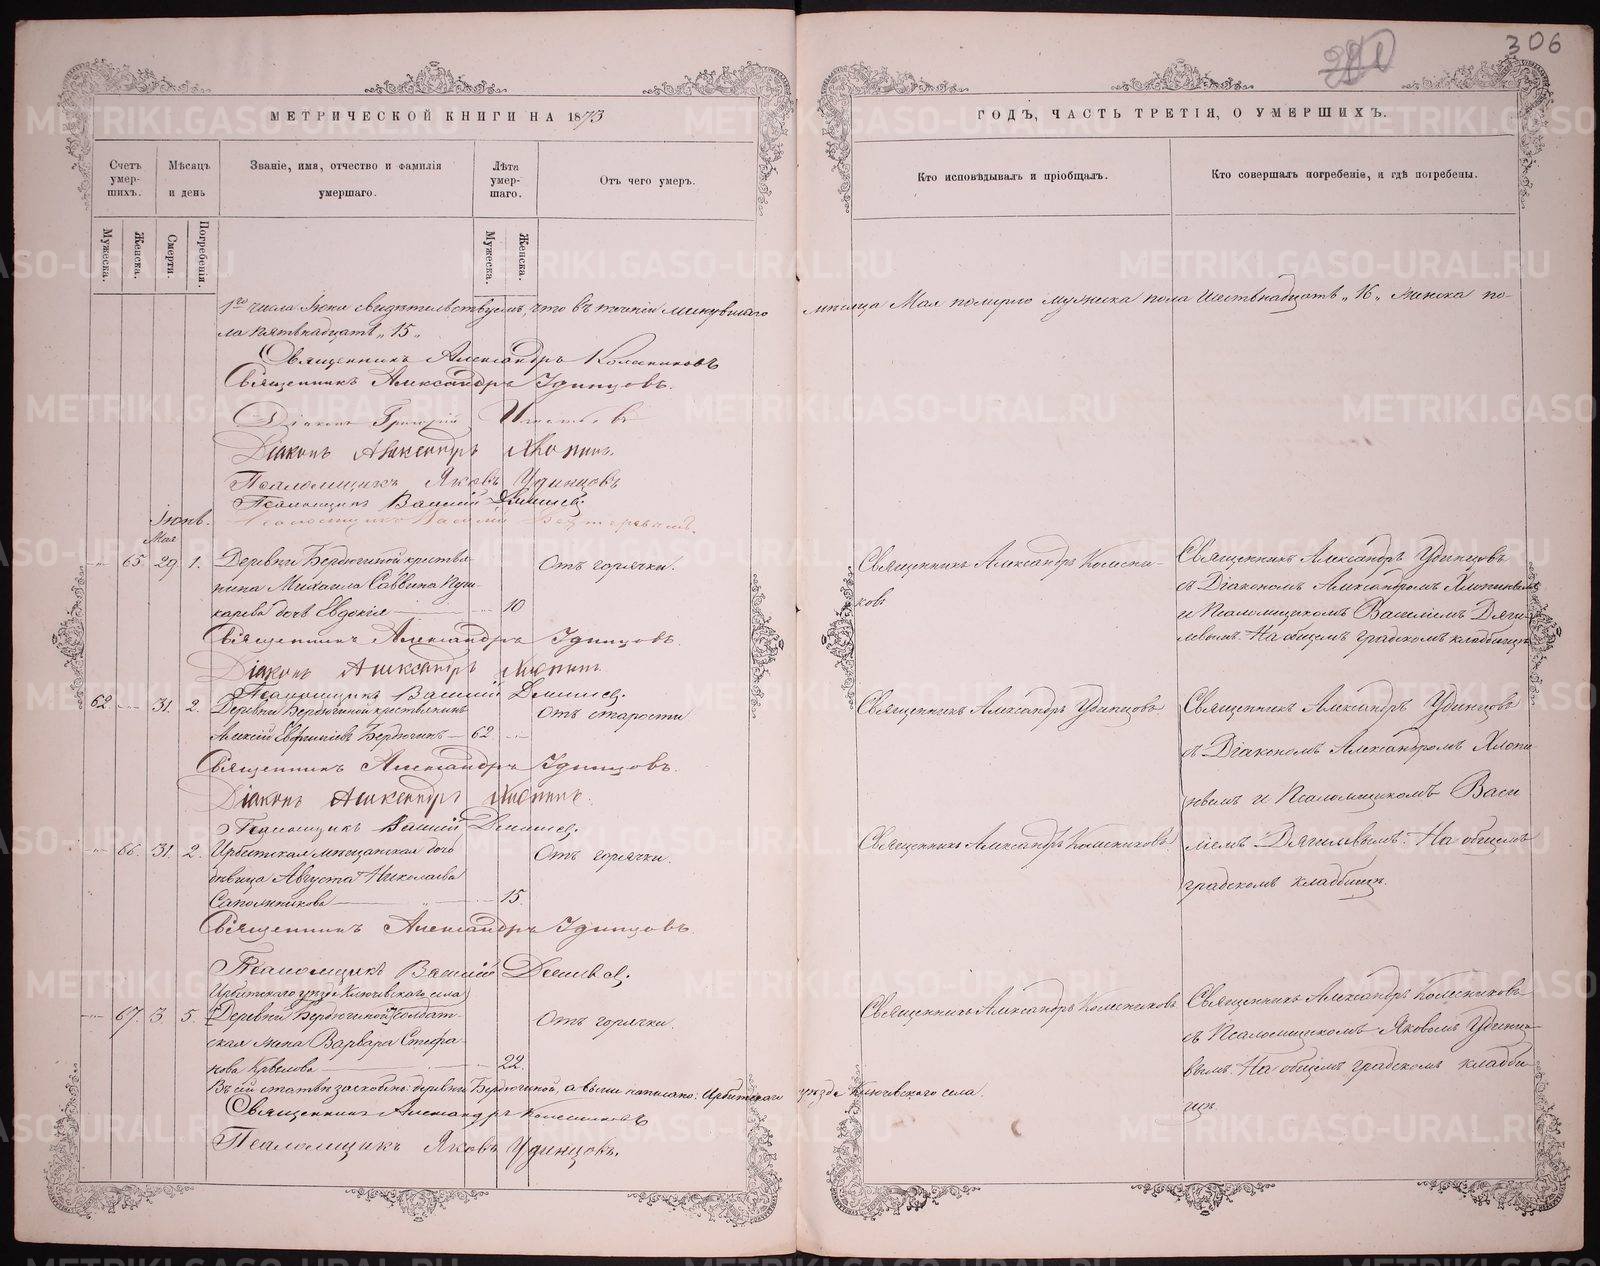 306
МЕТРИЧЕСКОЙ КНИГИ НА 1873
ГОДЪ, ЧАСТЬ ТРЕТІЯ, О УМЕРШИХЪ.
Счетъ умер-шихъ.
Мѣсяцъ и день
Званіе, имя, отчество и фамилія умершаго.
Лѣта умер-шаго.
Отъ чего умеръ.
Кто исповѣдывалъ и пріобщалъ.
Кто совершалъ погребеніе, и гдѣ погребены.
Мужеска.
Женска.
Смерти.
Погребенія.
Мужеска.
Женска.
1го числа Іюня свидѣтельствуемъ, что въ теченіи минувшаго мѣсяца Мая померло мужеска пола шестьнадцать „16„ женска по-
ла пятьнадцать „15„
Священникъ Александръ Колесниковъ
Священникъ Александръ Удинцовъ.
Діаконъ Григорій
Діаконъ Александръ Хлопинъ.
Псаломщикъ Яковъ Удинцовъ
Псаломщикъ Василій
Псаломщикъ Василій
Іюнь.
Мая
65 29 1. Деревни Бердюгиной крестья-
нина Михаила Саввина Пуш-
карева дочь Евдокія 10
Отъ горячки.
Священникъ Александръ Колесни-
ковъ
Священникъ Александръ Удинцовъ
съ Діакономъ Александромъ Хлопиновымъ
и Псаломщикомъ Василіемъ Дяги-
левымъ. На общемъ градскомъ кладбищѣ
Священникъ Александръ Удинцовъ.
Діаконъ Александръ Хлопинъ.
Псаломщикъ Василій
62 31. 2. Деревни Бердюгиной крестьянинъ
Алексій Евфиміевъ Бердюгинъ 62
Отъ старости
Священникъ Александръ Удинцовъ
Священникъ Александръ Удинцовъ
съ Діакономъ Александромъ Хлопи-
новымъ и Псаломщикомъ Васи
ліемъ Дягилевымъ. На общемъ
градскомъ кладбищѣ.
Священникъ Александръ Удинцовъ.
Діаконъ Александръ Хлопинъ.
Псаломщикъ Василій
66. 31. 2. Ирбитская мѣщанская дочь
дѣвица Августа Николаева
Сапожникова 15
Отъ горячки.
Священникъ Александръ Колесниковъ.
Священникъ Александръ Удинцовъ.
Псаломщикъ Василій
Ирбитскаго уѣзда Ключевскаго села
67. 3. 5. [Деревни Бердюгиной] солдат-
ская жена Варвара Стефа-
нова 22.
Отъ горячки.
Священникъ Александръ Колесниковъ
Священникъ Александръ Колесниковъ
съ Псаломщикомъ Яковомъ Удинцо-
вымъ. На общемъ градскомъ кладби-
щѣ.
Въ сей статьѣ заскоблено: деревни Бердюгиной, а выше написано: Ирбитскаго уѣзда Ключевскаго села.
Священникъ Александръ Колесниковъ
Псаломщикъ Яковъ Удинцовъ.
METRIKI.GASO-URAL.RU